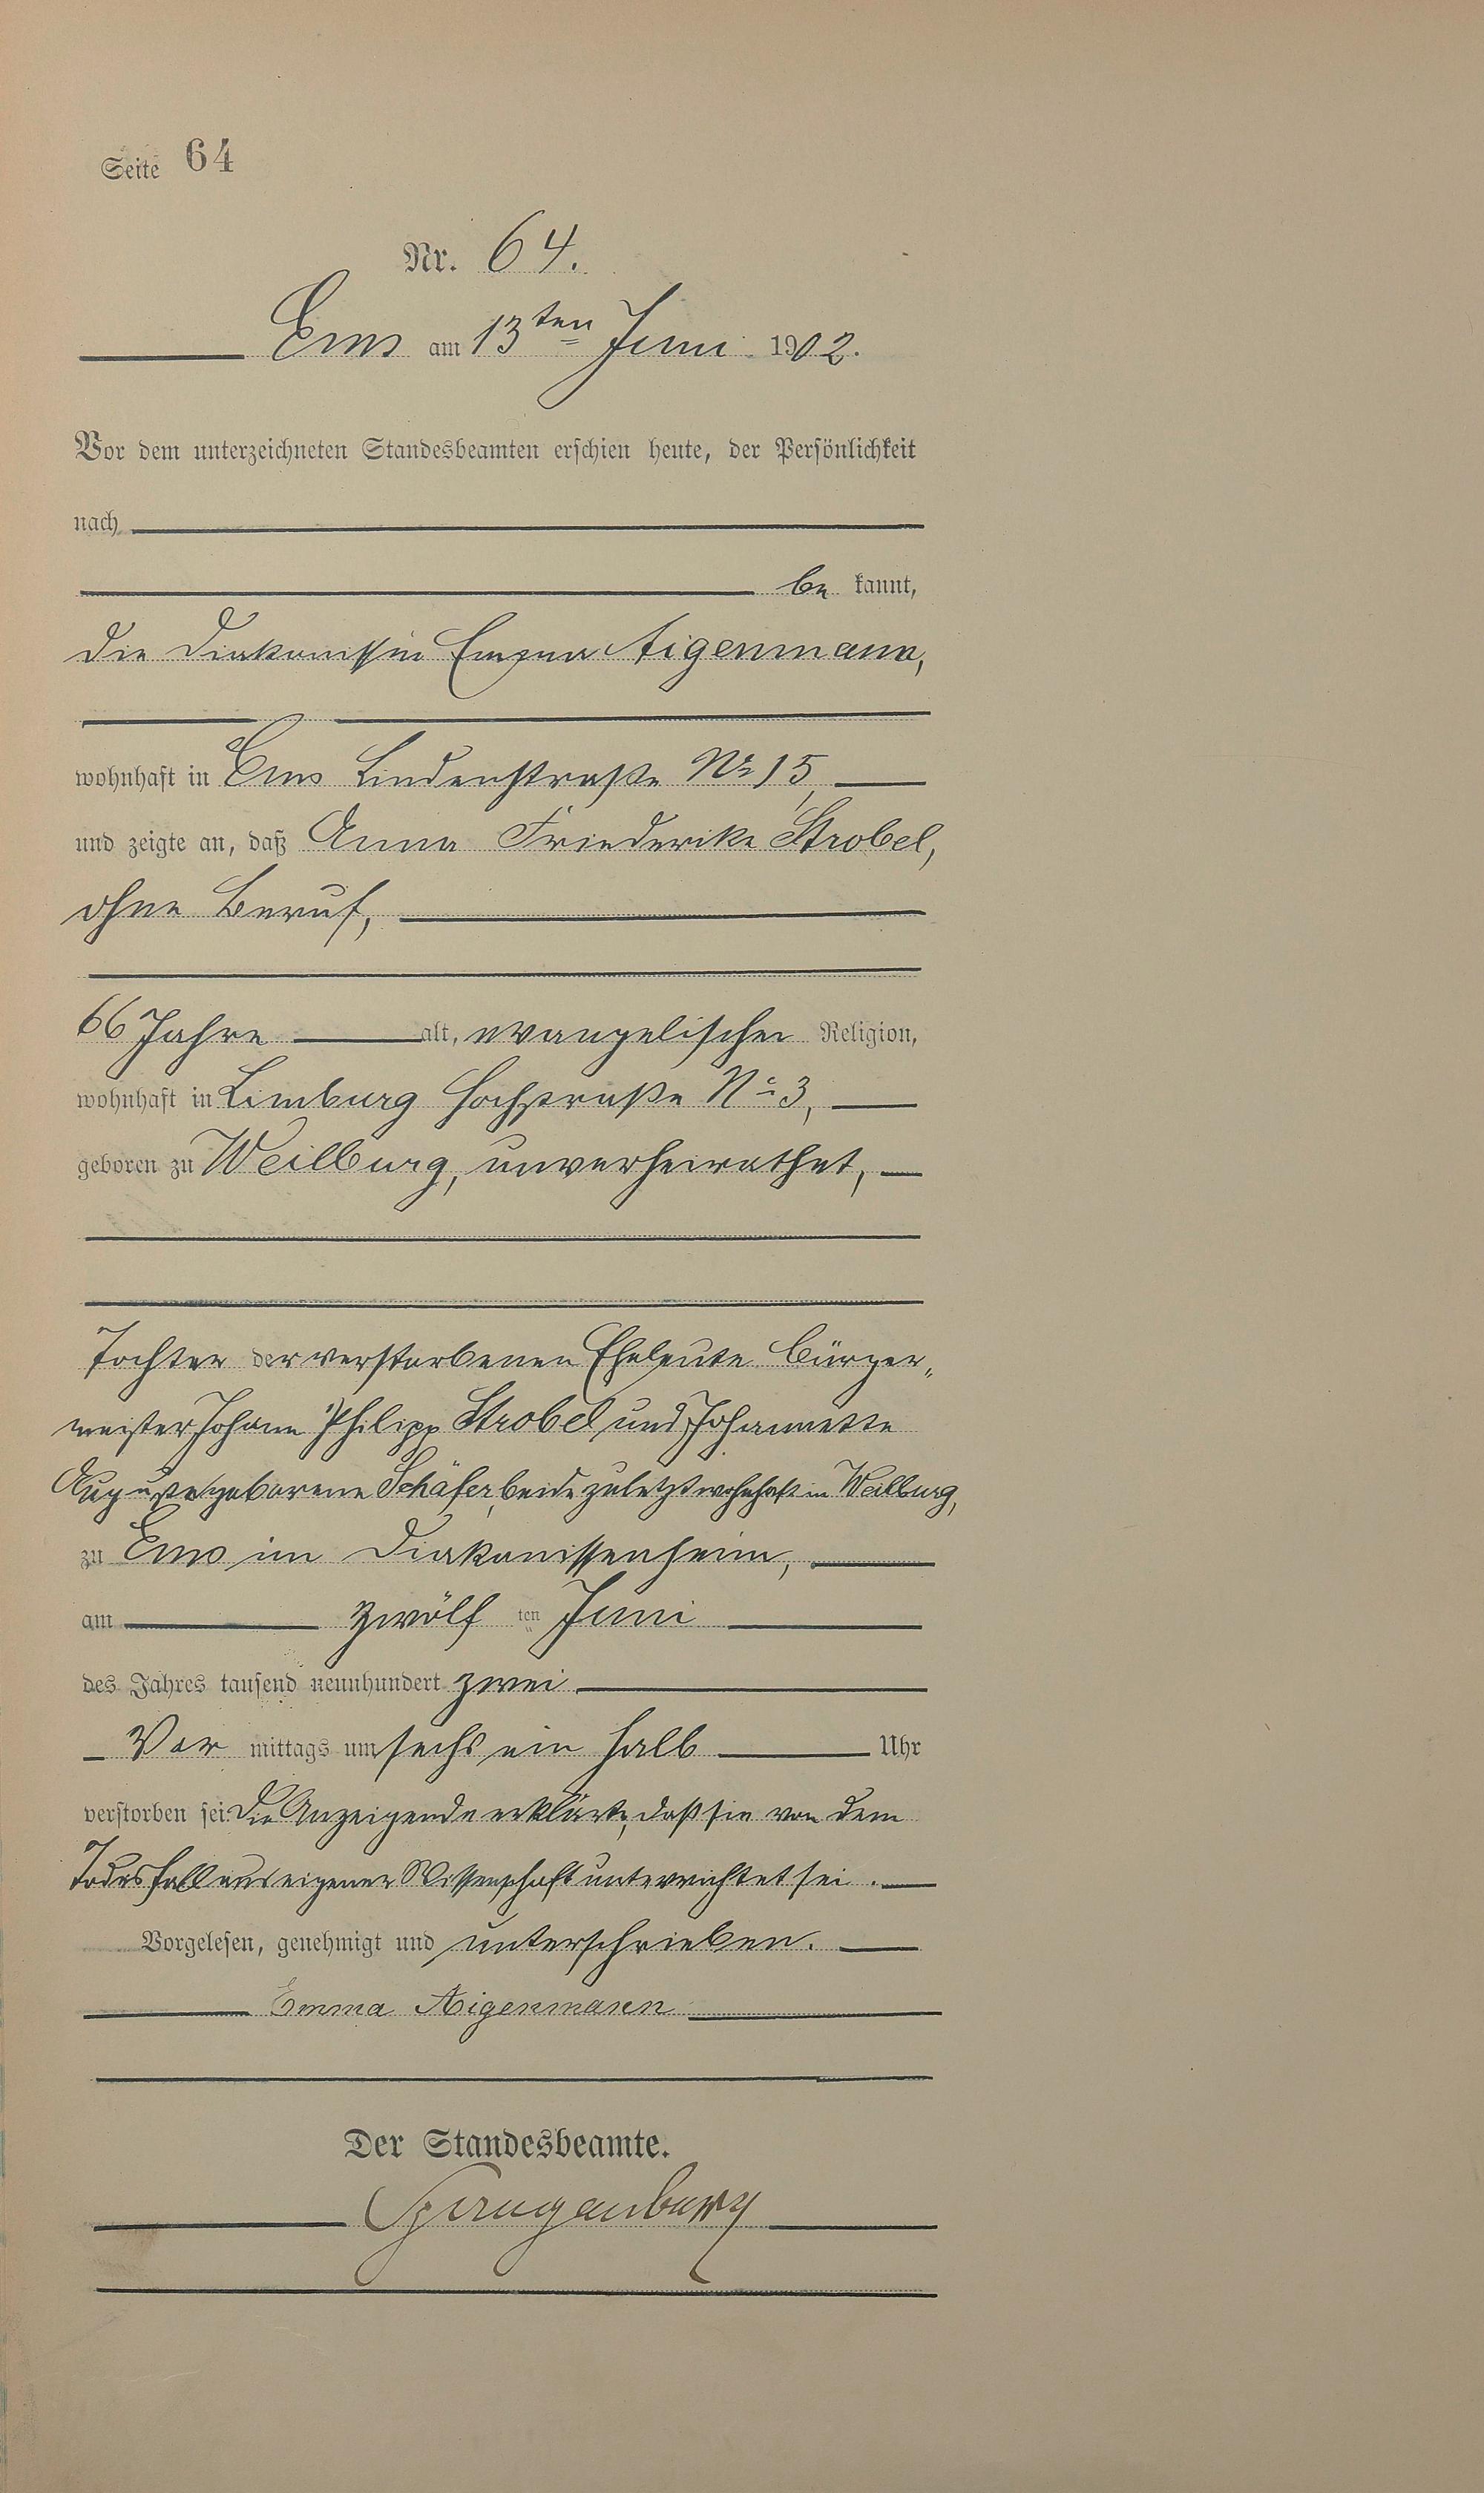 Seite 64
Nr. 64.
Ems am 13ten Juni 1902.
Vor dem unterzeichneten Standesbeamten erschien heute, der Persönlichkeit
nach
be kannt,
die Diakonissin Emma Aigenmann,
wohnhaft in Ems Lindenstraße No 15,
und zeigte an, daß Anna Friederike Strobel,
ohne Beruf,
66 Jahre alt, evangelischer Religion,
wohnhaft in Limburg Hochstraße No 3,
geboren zu Weilburg, unverheirathet,
Tochter der verstorbenen Eheleute Bürger-
meister Johann Philipp Strobel und Johannette
Auguste geborene Schäfer, beide zuletzt wohnhaft in Weilburg,
zu Ems im Diakonissenheim,
am zwölf ten Juni
des Jahres tausend neunhundert zwei
Vor mittags um sechs ein halb Uhr
verstorben sei. Die Anzeigende erklärte, daß sie von dem
Todesfall aus eigener Wissenschaft unterrichtet sei.
Vorgelesen, genehmigt und unterschrieben.
Emma Aigenmann
Der Standesbeamte.